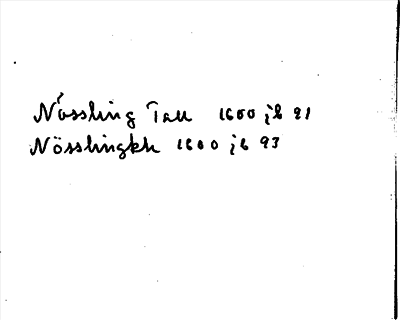 Nössling Tall 1600 jb 91
Nösslingkh 1600 jb 93